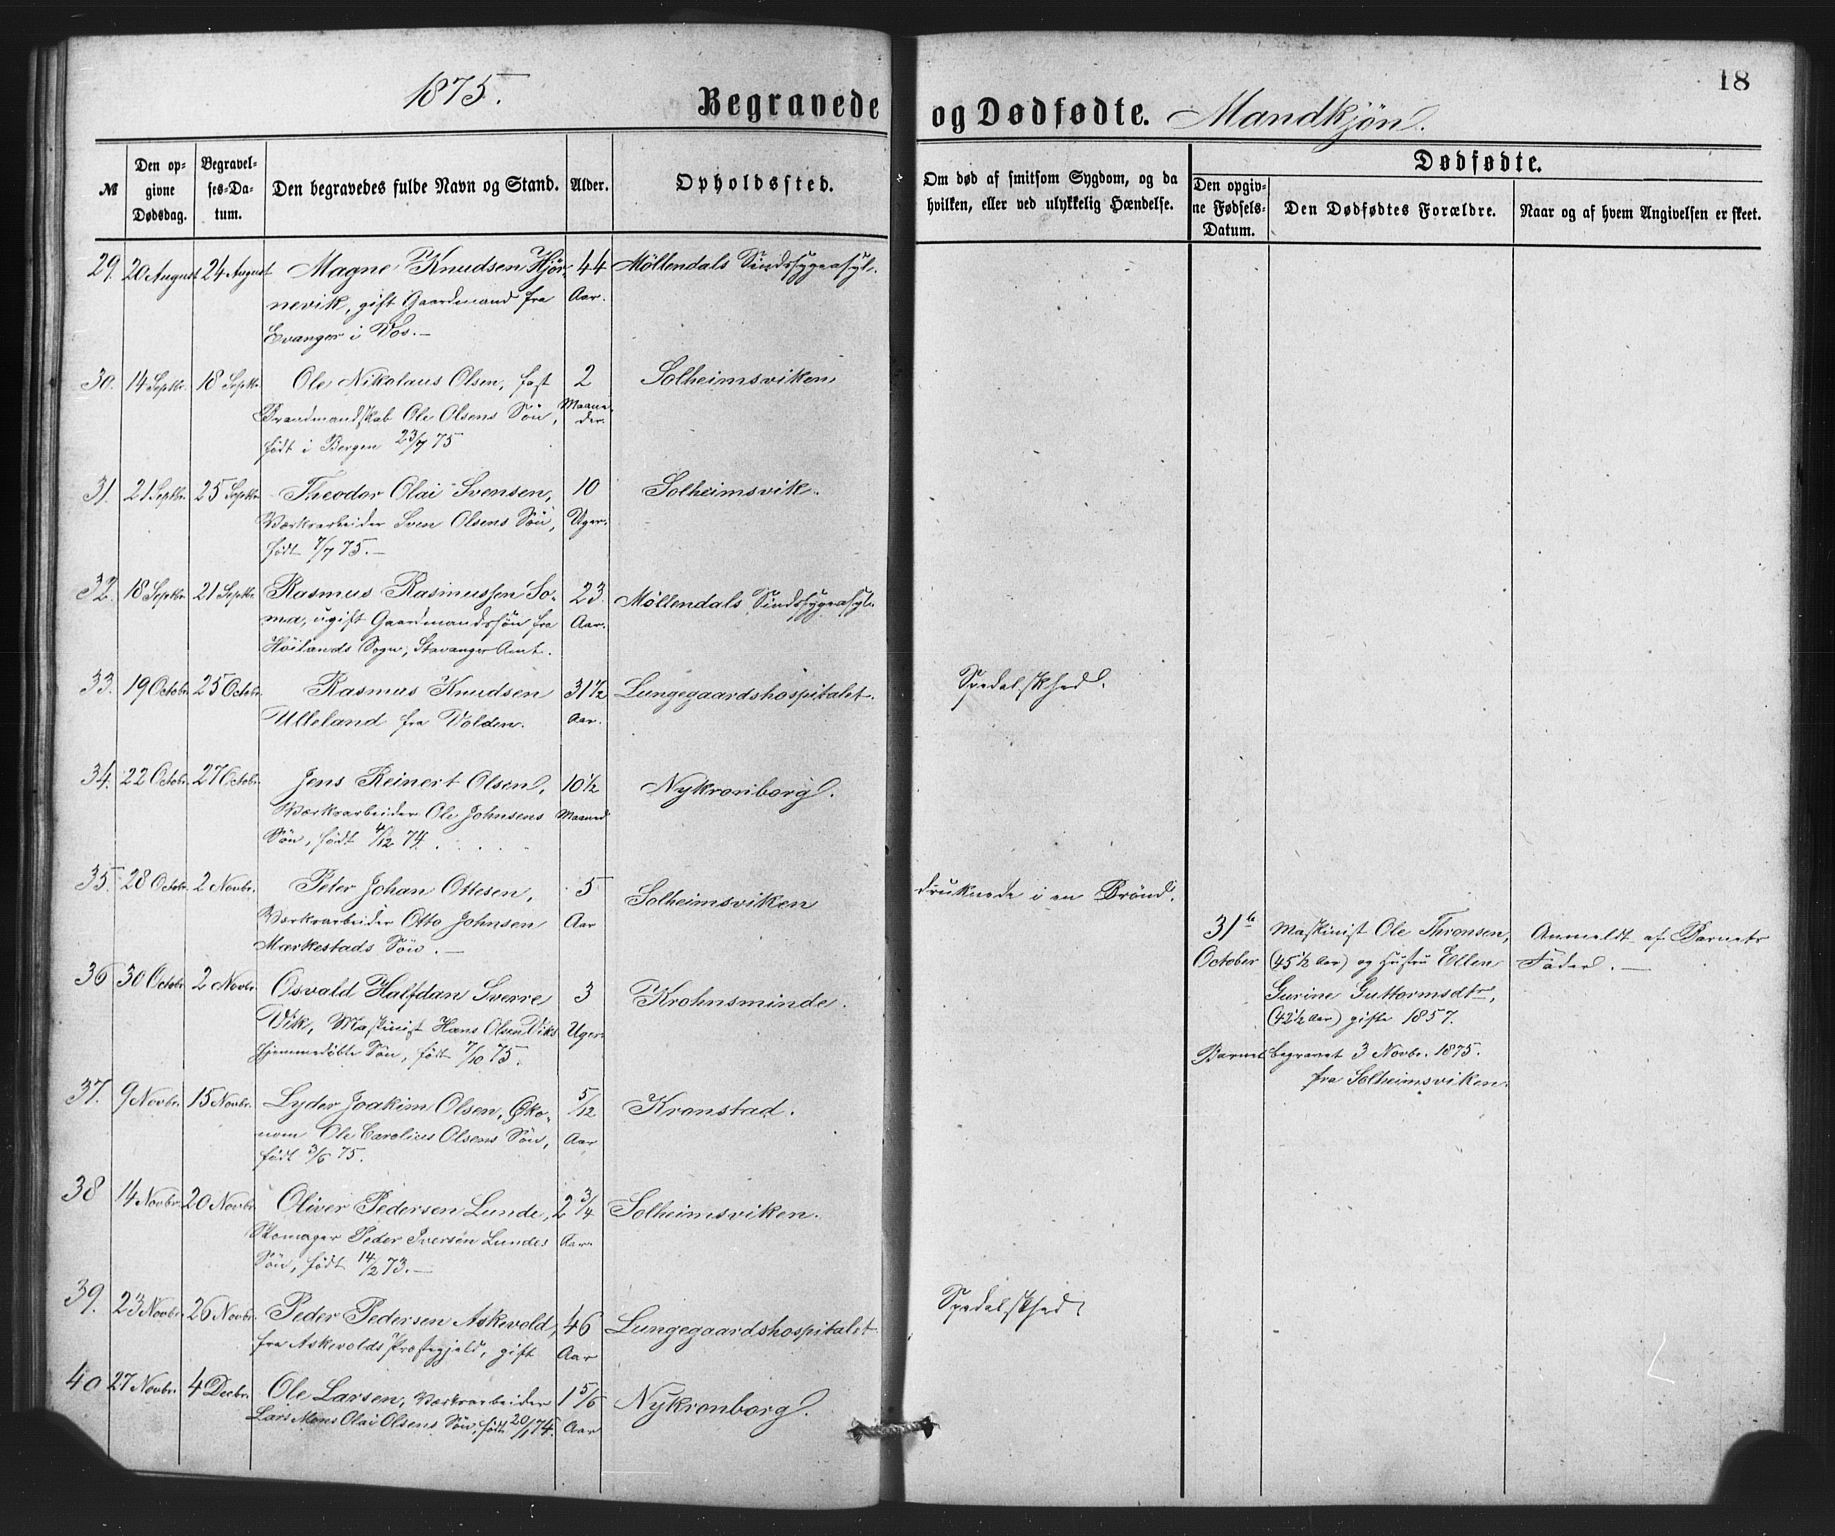 1875.
Begravede og Dødfødte. Mandkjøn.
18
№
Den opgivne Dødsdag.
Begravelses-Datum.
Den begravedes fulde Navn og Stand.
Alder.
Opholdssted.
Om død af smitsom Sygdom, og da hvilken, eller ved ulykkelig Hændelse.
Dødfødte.
Den opgivne Fødsels-Datum.
Den Dødfødtes Forældre.
Naar og af hvem Angivelsen er skeet.
29. 20 August 24 August Magne Knudsen Hjør- 44 Møllendals Sindssygeasyl.
nevik, gift Gaardmand fra Aar.
Evanger i Vos.—
30. 14 Septbr. 18 Septbr. Ole Nikolaus Olsen, fast 2 Solheimsviken
Brandmandskab Ole Olsens Søn, Maane-
født i Bergen 23/7 75 der.
31. 21 Septbr. 25 Septbr. Theodor Olai Svensen, 10 Solheimsvik.
Værksarbeider Sven Olsens Søn, Uger.
født 7/7 75.—
32. 18 Septbr. 21 Septbr. Rasmus Rasmussen So- 23 Møllendals Sindssygeasyl.
ma, ugift Gaardmandssøn fra Aar.
Høilands Sogn, Stavanger Amt.
33. 19 Octobr. 25 Octobr. Rasmus Knudsen 31 1/2 Lungegaardshospitalet. Spedalskhed.
Ulleland fra Volden. Aar.
34. 22 Octobr. 27 Octobr. Jens Reinert Olsen, 10 1/2 Nykronborg.
Værksarbeider Ole Johnsens Maaned
Søn, født 4/12 74.
35. 28 Octobr. 2 Novbr. Peter Johan Ottesen, 5 Solheimsviken druknede i en Brønd.
Værksarbeider Otto Johnsen Aar
Mærkestads Søn.—
31te October
Maskinist Ole Thronsen,
(45 1/2 Aar) og Hustru Ellen
Gurine Guttormsdtr.,
(42 1/2 Aar) gifte 1857.
Barnet begravet 3 Novbr. 1875.
fra Solheimsviken.
Anmeldt af Barnets
Fader.—
36 30 Octobr. 2 Novbr. Osvald Halfdan Sverre 3 Krohnsminde.
Vik, Maskinist Hans Olsen Viks Uger
hjemmedøbte Søn, født 7/10 75.
37. 9 Novbr. 15 Novbr. Lyder Joakim Olsen, Øko- 5/12 Kronstad.
nom Ole Carolius Olsens Søn, Aar
født 3/6 75.
38 14 Novbr. 20 Novbr. Oliver Pedersen Lunde, 2 3/4 Solheimsviken.
Skomager Peder Iversen Lundes Aar
Søn, født 14/2 73.—
39. 23 Novbr. 26 Novbr. Peder Pedersen Askevold, 46 Lungegaardshospitalet Spedalskhed
fra Askevolds Præstegjeld, gift Aar
40 27 Novbr. 4 Decbr. Ole Larsen, Værksarbeider 1 5/6 Nykronborg.
Lars Mons Olai Olsens Søn, født 20/1 74. Aar